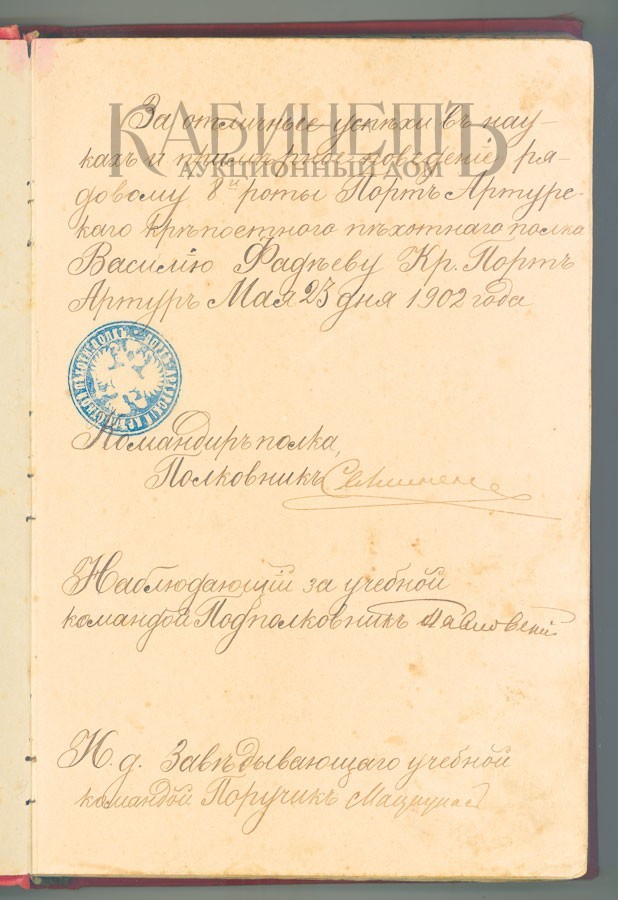 КАБИНЕТЪ
АУКЦИОННЫЙ ДОМ
За отличные успѣхи въ нау-
кахъ и примѣрное поведеніе ря-
довому 8й роты Портъ Артурс-
каго крѣпостного пѣхотнаго полка
Василію Фадѣеву Кр. Портъ
Артуръ Мая 23 дня 1902 года
Командиръ полка,
Полковникъ
Наблюдающій за учебной
командой Подполковникъ
И. д. Завѣдывающаго учебной
командой Поручикъ